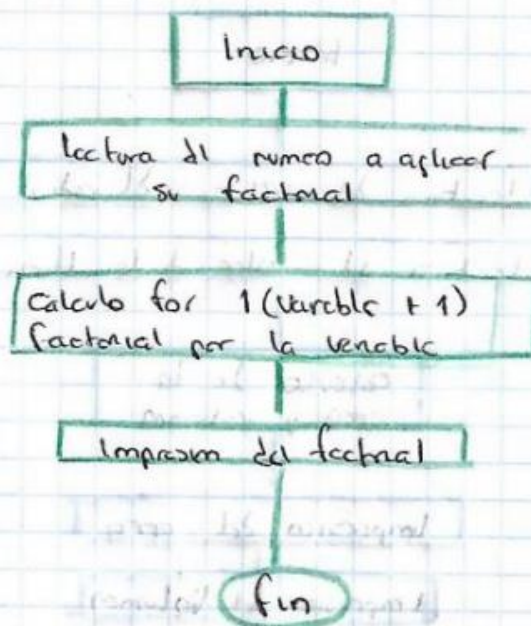 Inicio
lectura dl numeo a aplicar
su factorial
Calculo for 1 (varible + 1)
factorial por la varible
Impresion del factorial
fin